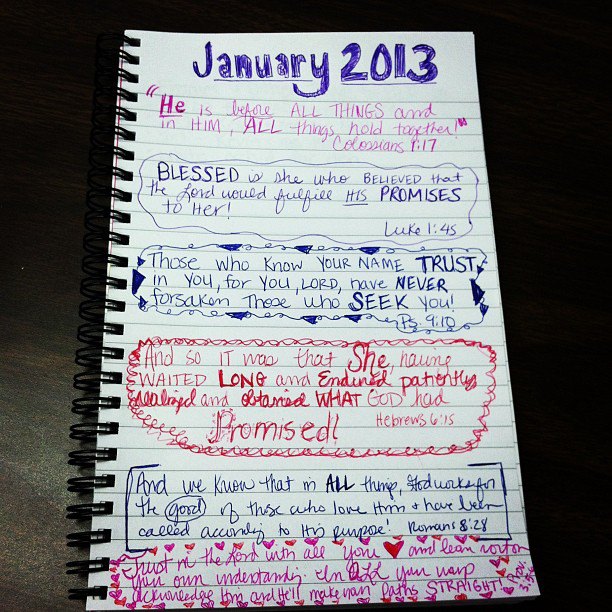 January 2013
"He is before ALL THINGS and
in HIM, ALL things hold together!"
Colossians 1:17
BLESSED is she who BELIEVED that
the Lord would fulfill HIS PROMISES
to Her!
Luke 1:45
Those who know YOUR NAME TRUST
in YOU, for YOU, LORD, have NEVER
forsaken those who SEEK YOU!
Ps. 9:10
And so IT was that She, having
WAITED LONG and Endured patiently
realized and obtained WHAT GOD had
Promised!
Hebrews 6:15
And we know that in ALL things, God works for
the good of those who love Him & have been
called according to His purpose! Romans 8:28
Trust in the Lord with all your ♥ and lean not on
your own understanding. In ALL your ways
acknowledge Him and He'll make your paths STRAIGHT!
Prov. 3:5-6